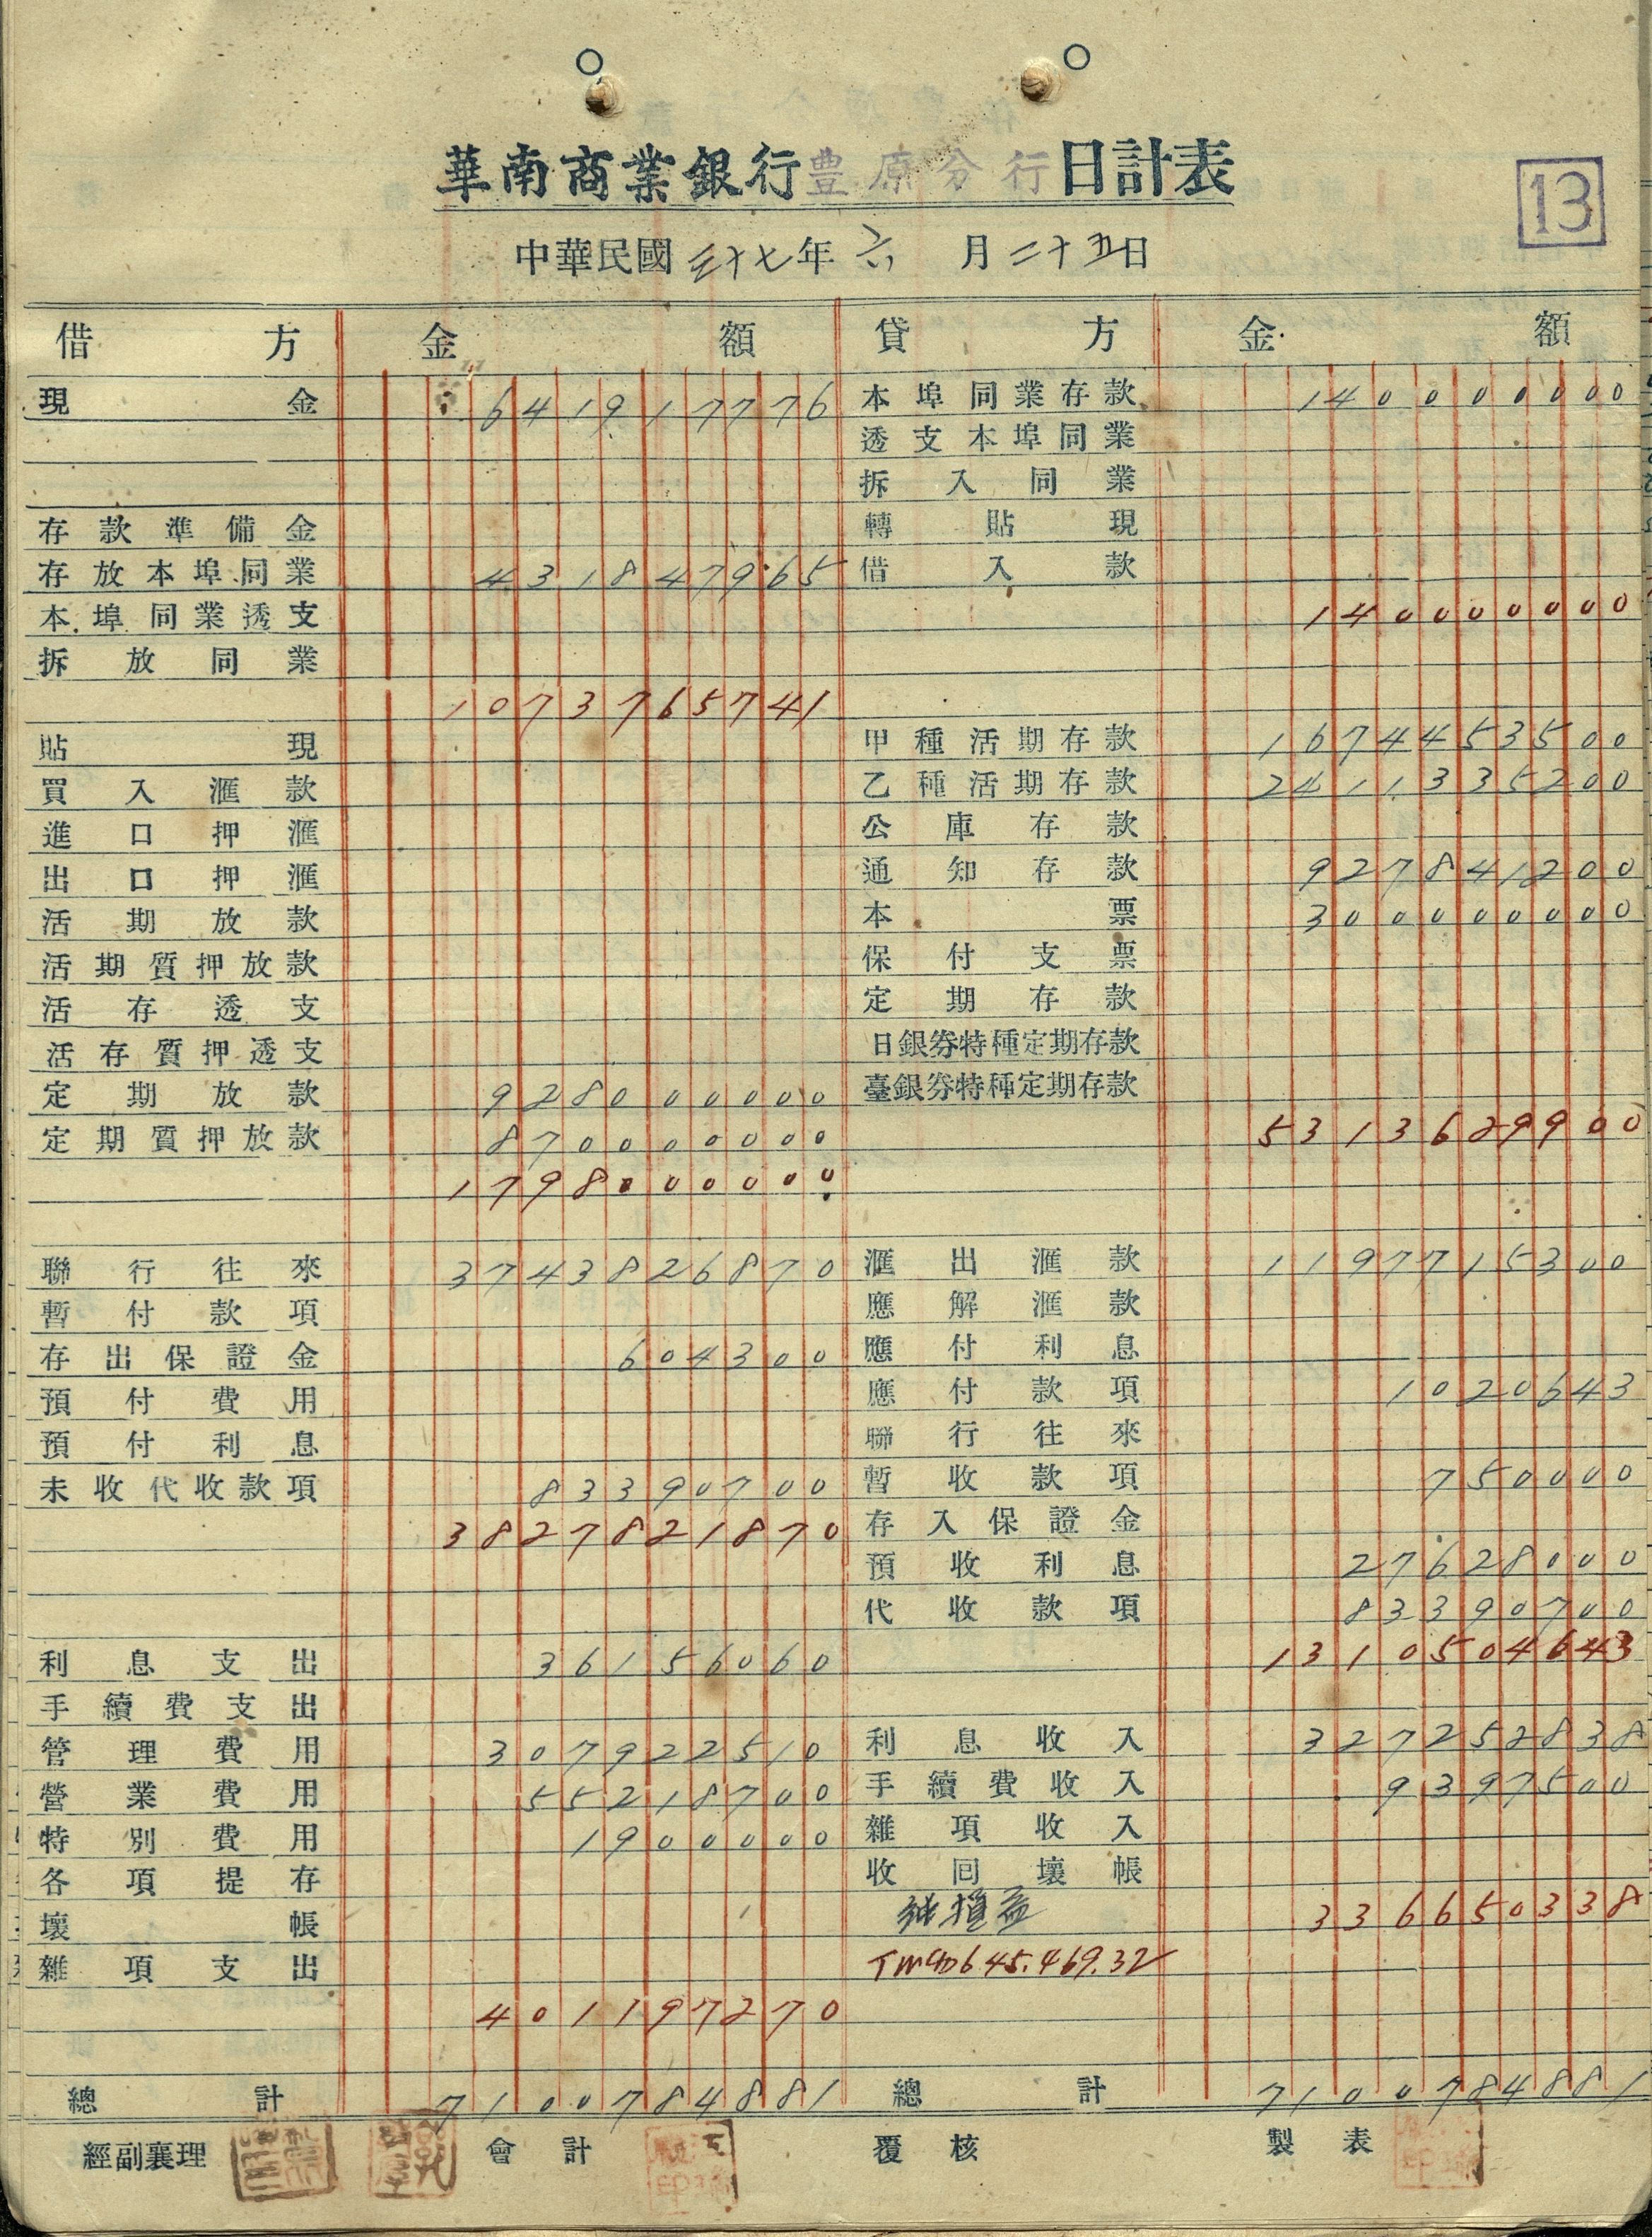 華南商業銀行豊原分行日計表
13
中華民國三十七年六月二十五日
借方 金額 貸方 金額
現金 641917776 本埠同業存款 140000000
透支本埠同業
拆入同業
存款準備金 轉貼現
存放本埠同業 431847965 借入款
本埠同業透支 140000000
拆放同業
1073765741
貼現 甲種活期存款 1674453500
買入滙款 乙種活期存款 2411335200
進口押滙 公庫存款
出口押滙 通知存款 927841200
活期放款 本票 300000000
活期質押放款 保付支票
活存透支 定期存款
活存質押透支 日銀券特種定期存款
定期放款 928000000 臺銀券特種定期存款
定期質押放款 870000000 5313629900
1798000000
聯行往來 3743826870 滙出滙款 1197715300
暫付款項 應解滙款
存出保證金 604300 應付利息
預付費用 應付款項 1020643
預付利息 聯行往來
未收代收款項 83390700 暫收款項 750000
3827821870 存入保證金
預收利息 27628000
代收款項 83390700
利息支出 36156060 1310504643
手續費支出
管理費用 307922510 利息收入 327252838
營業費用 55218700 手續費收入 9397500
特別費用 1900000 雜項收入
各項提存 收回壞帳
壞帳 純損益 336650338
雜項支出 645.469.32
401197270
總計 7100784881 總計 7100784881
經副襄理 會計 覆核 製表